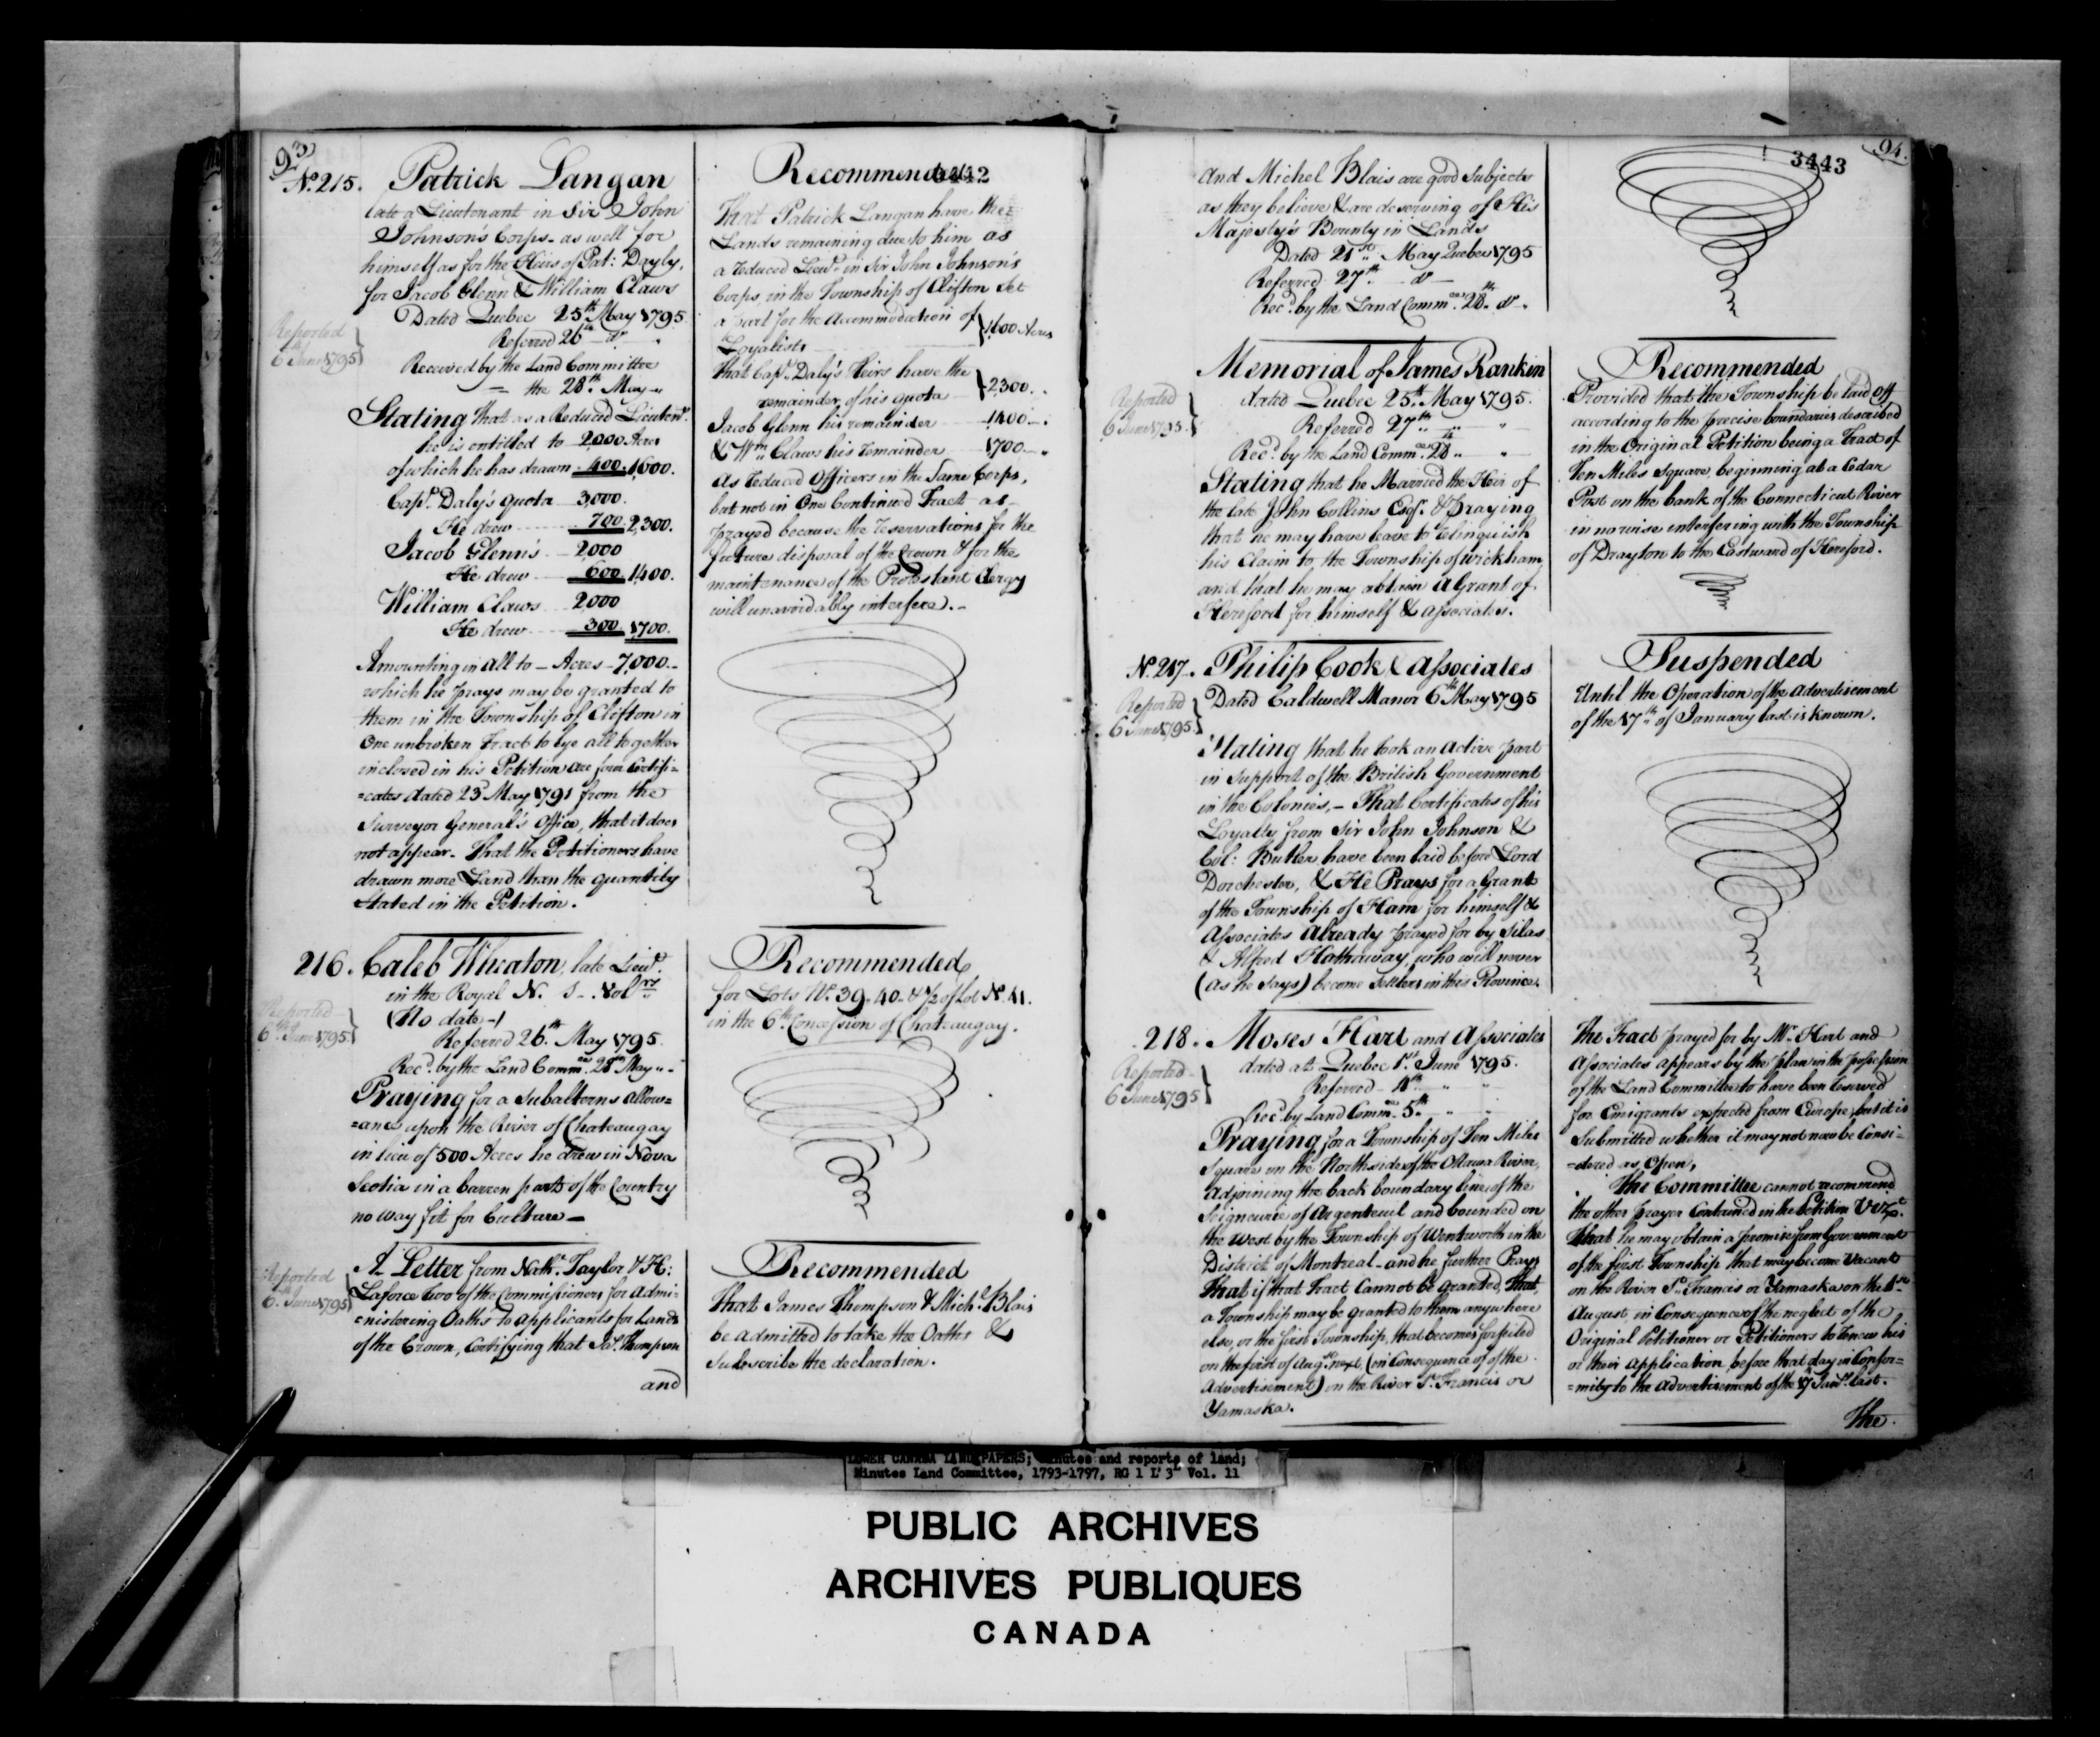 93
3442
No. 215. Patrick Langan
late a Lieutenant in Sir John
Johnson's Corps - as well for
himself as for the Heirs of Pat: Dayly,
for Jacob Glenn & William Claws
Dated Quebec 25th May 1795
Referred 26th do
Reported
6th June 1795
Received by the Land Committee
= the 28th May
Stating that as a Reduced Lieutent.
he is entitled to 2,000 Acres
of which he has drawn 400. 1,600.
Capt. Daly's quota 3,000.
He drew 700. 2,300.
Jacob Glenn's 2,000
He drew 600. 1,400.
William Claws 2,000
He drew 300. 1,700.
Amounting in all to - Acres - 7,000.-
which he prays may be granted to
them in the Township of Clifton in
One unbroken Tract to lye all together
inclosed in his Petition are four Certifi=
=cates dated 23d May 1791 from the
Surveyor General's Office, that it does
not appear - That the Petitioners have
drawn more Land than the quantity
Stated in the Petition.
Recommended
That Patrick Langan have the
Lands remaining due to him as
a reduced Lieut. in Sir John Johnson's
Corps, in the Township of Clifton Set
a part for the Accommodation of
Loyalists } 1,600 Acres
That Capt. Daly's Heirs have the
remainder of his quota } 2,300.
Jacob Glenn his remainder 1,400 - .
& Wm. Claws his remainder 1,700 - .
As reduced Officers in the Same Corps,
but not in One Continued Tract as
prayed because the reservations for the
future disposal of the Crown & for the
maintenance of the Protestant Clergy
will unavoidably interfere. -
216. Caleb Wheaton, late Lieut.
in the Royal N. S. Volrs
(No date -)
Referred 26th May 1795
Reported
6th June 1795
Recd. by the Land Commee. 28th May
Praying for a Subalterns allow=
=ance upon the River of Chateaugay
in lieu of 500 Acres he drew in Nova
Scotia in a barren part of the Country
no way fit for Culture -
Recommended
for Lots No. 39 - 40 - & 1/2 of Lot No. 41.
in the 6th Concession of Chateaugay.
Reported
6th June 1795
A Letter from Nathl. Taylor & H:
Laforce two of the Commissioners for Admi=
=nistering Oaths to applicants for Lands
of the Crown, Certifying that Jas. Thompson
and
Recommended
That James Thompson & Michl. Blais
be admitted to take the Oaths &
Subscribe the declaration.
94.
3443
And Michel Blais are good Subjects
as they believe & are deserving of His
Majesty's Bounty in Lands
Dated 21st May Quebec 1795
Referred 27th do
Recd. by the Land Commee. 28th do.
Memorial of James Rankin
dated Quebec 25th May 1795.
Reported
6 June 1795.
Referred 27th " "
Recd. by the Land Commee. 28th "
Stating that he Married the Heir of
the late John Collins Esqr. & Praying
that he may have leave to relinquish
his Claim to the Township of Wickham
and that he may obtain a Grant of
Hereford for himself & associates.
Recommended
Provided that the Township be laid off
according to the precise boundaries described
in the Original Petition being a Tract of
Ten Miles Square, beginning at a Cedar
Post on the bank of the Connecticut River
in no wise interfering with the Township
of Drayton to the Eastward of Hereford.
No. 217. Philip Cook & Associates
Dated Caldwell Manor 6th May 1795
Reported
6 June 1795.
Stating that he took an active part
in Support of the British Government
in the Colonies, - That Certificates of his
Loyalty from Sir John Johnson &
Col: Butler have been laid before Lord
Dorchester, & He Prays for a Grant
of the Township of Ham for himself &
Associates already prayed for by Silas
& Alfred Hathaway, who will never
(as he says) become Settlers in this Province.
Suspended
Until the Operation of the Advertisement
of the 17th of January last is known.
218. Moses Hart and Associates
dated at Quebec 1st. June 1795.
Reported
6 June 1795
Referred 4th " "
Recd. by Land Commee. 5th " "
Praying for a Township of Ten Miles
Square on the North side of the Ottawa River,
Adjoining the back boundary line of the
Seigneurie of Argenteuil and bounded on
the West by the Township of Wentworth in the
District of Montreal - and he further Prays
That if that Tract Cannot be granted, That
a Township may be granted to them anywhere
else, or the first Township, that becomes forfeited
on the first of Augst. next, (in Consequence of of the
Advertisement) on the River St. Francis or
Yamaska.
The Tract prayed for by Mr. Hart and
Associates appears by the plan in the possession
of the Land Committee to have been reserved
for Emigrants expected from Europe, but it is
Submitted whether it may not now be Consi=
=dered as Open,
The Committee cannot recommend
the other prayer Contained in the Petition Vizt.
That he may obtain a promise from Government
of the first Township that may become Vacant
on the River St. Francis or Yamaska on the 1st
August, in Consequence of the neglect of the
Original Petitioner or Petitioners to renew his
or their application before that day in Confor=
=mity to the Advertisement of the 17th Jany. last.
The
LOWER CANADA LAND PAPERS; Minutes and reports of land;
Minutes Land Committee, 1793-1797, RG 1 L 3L Vol. 11
PUBLIC ARCHIVES
ARCHIVES PUBLIQUES
CANADA